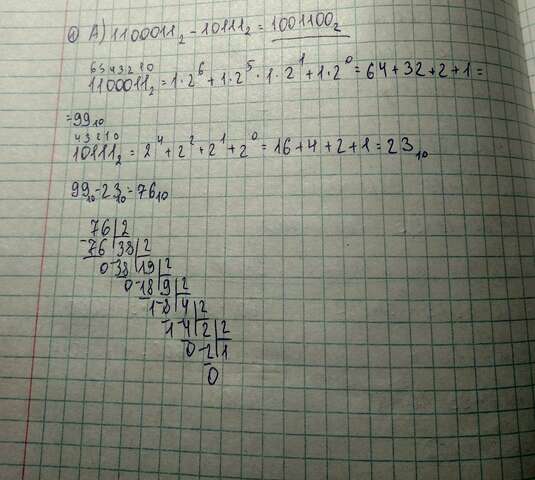 ① А) 1100011₂ - 10111₂ = 1001100₂
6 5 4 3 2 1 0
1100011₂ = 1·2⁶ + 1·2⁵ · 1·2¹ + 1·2⁰ = 64 + 32 + 2 + 1 =
= 99₁₀
4 3 2 1 0
10111₂ = 2⁴ + 2² + 2¹ + 2⁰ = 16 + 4 + 2 + 1 = 23₁₀
99₁₀ - 23₁₀ = 76₁₀
76 2
-76 38 2
0 -38 19 2
0 -18 9 2
1 -8 4 2
1 -4 2 2
0 -2 1
0